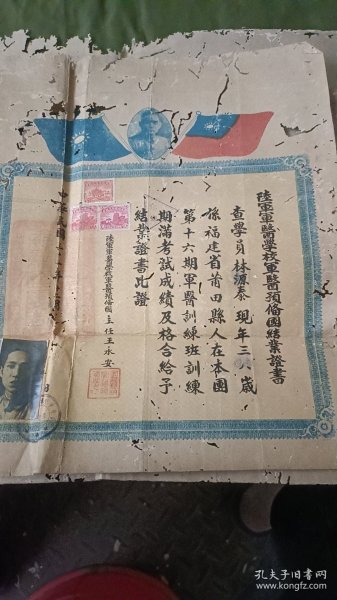 陸軍軍醫學校軍醫預備團結業證書
查學員林源泰現年三歲
係福建省莆田縣人在本團
第十六期軍醫訓練班訓練
期滿考試成績及格合給予
結業證書此證
陸軍軍醫學校軍醫預備團主任王永安
孔夫子旧书网
www.kongfz.com